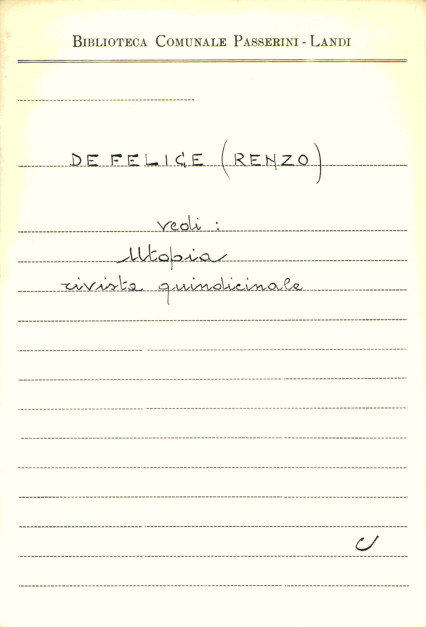 BIBLIOTECA COMUNALE PASSERINI - LANDI
DE FELICE (RENZO)
vedi :
Utopia
rivista quindicinale